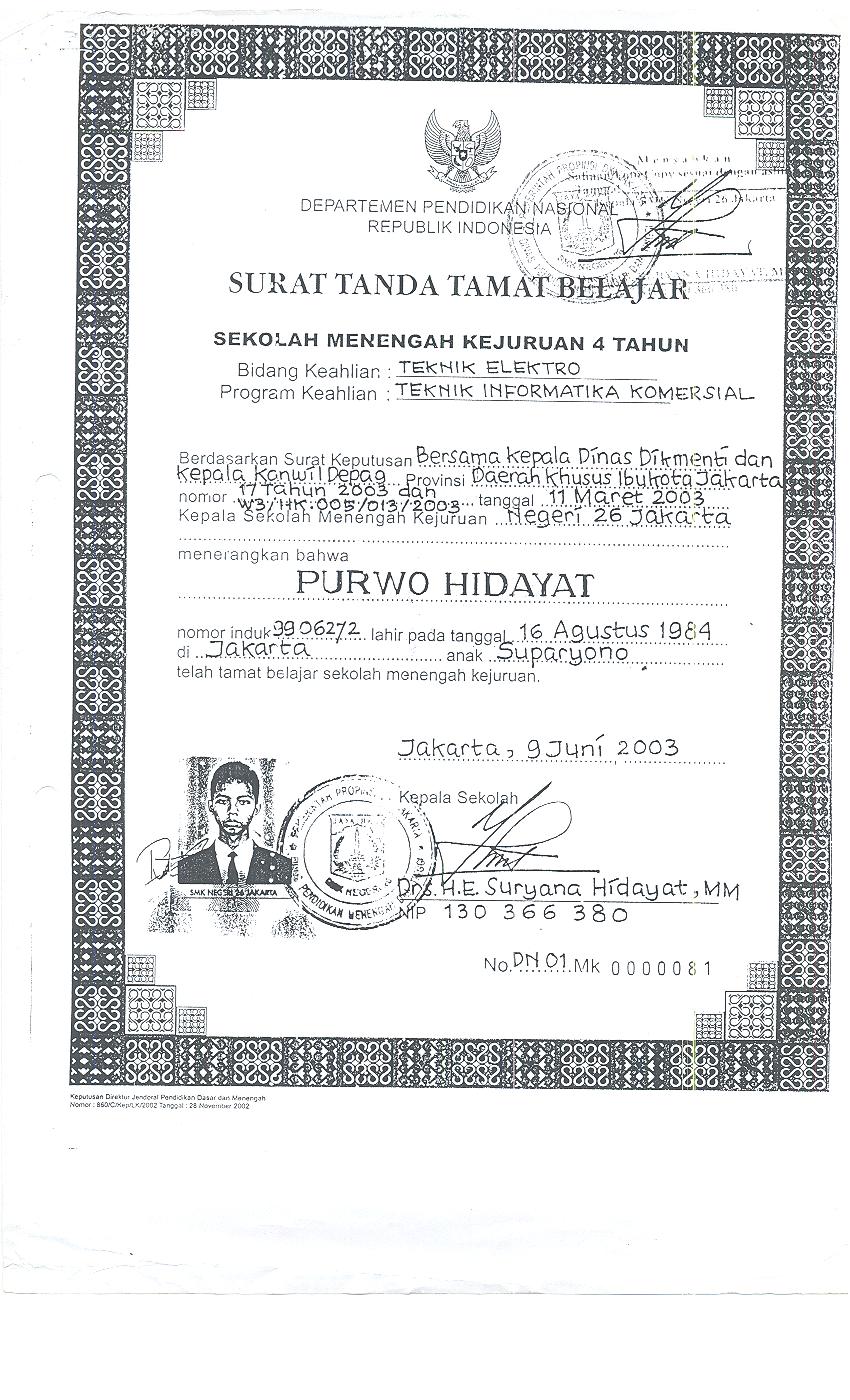 Menyatakan
Jakarta
DEPARTEMEN PENDIDIKAN NASIONAL
REPUBLIK INDONESIA
SURAT TANDA TAMAT BELAJAR
SEKOLAH MENENGAH KEJURUAN 4 TAHUN
Bidang Keahlian : TEKNIK ELEKTRO
Program Keahlian : TEKNIK INFORMATIKA KOMERSIAL
Berdasarkan Surat Keputusan Bersama Kepala Dinas Dikmenti dan
Kepala Kanwil Depag Provinsi Daerah Khusus Ibukota Jakarta
nomor 17 Tahun 2003 dan
W3/HK.005/013/2003 tanggal 11 Maret 2003
Kepala Sekolah Menengah Kejuruan Negeri 26 Jakarta
menerangkan bahwa
PURWO HIDAYAT
nomor induk 9906272 lahir pada tanggal 16 Agustus 1984
di Jakarta anak Suparyono
telah tamat belajar sekolah menengah kejuruan.
Jakarta, 9 Juni 2003
Kepala Sekolah
SMK NEGERI 26 JAKARTA
PENDIDIKAN MENENGAH
Drs. H.E. Suryana Hidayat, MM
NIP 130 366 380
No. DN 01 Mk 0000081
Keputusan Direktur Jenderal Pendidikan Dasar dan Menengah
Nomor : 860/C/Kep/LK/2002 Tanggal : 28 November 2002